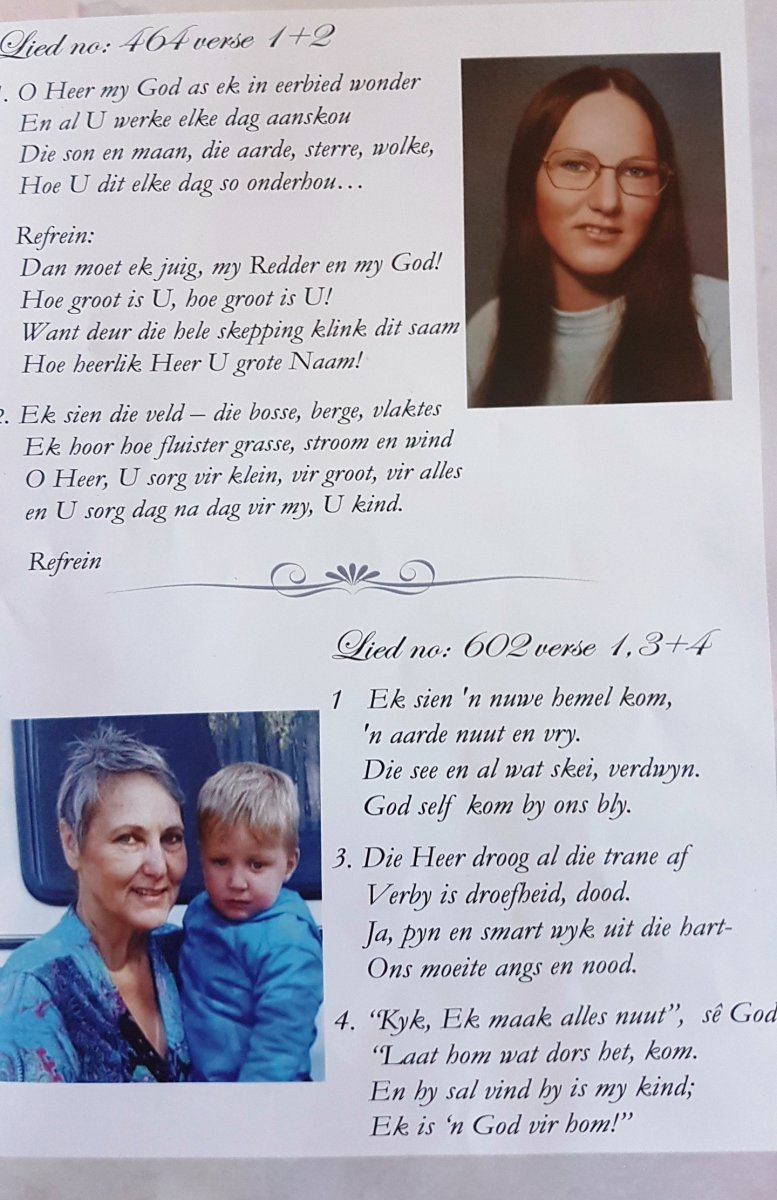 Lied no: 464 verse 1+2
. O Heer my God as ek in eerbied wonder
En al U werke elke dag aanskou
Die son en maan, die aarde, sterre, wolke,
Hoe U dit elke dag so onderhou…
Refrein:
Dan moet ek juig, my Redder en my God!
Hoe groot is U, hoe groot is U!
Want deur die hele skepping klink dit saam
Hoe heerlik Heer U grote Naam!
2. Ek sien die veld – die bosse, berge, vlaktes
Ek hoor hoe fluister grasse, stroom en wind
O Heer, U sorg vir klein, vir groot, vir alles
en U sorg dag na dag vir my, U kind.
Refrein
Lied no: 602 verse 1,3+4
1 Ek sien 'n nuwe hemel kom,
'n aarde nuut en vry.
Die see en al wat skei, verdwyn.
God self kom by ons bly.
3. Die Heer droog al die trane af
Verby is droefheid, dood.
Ja, pyn en smart wyk uit die hart-
Ons moeite angs en nood.
4. “Kyk, Ek maak alles nuut”, sê God
“Laat hom wat dors het, kom.
En hy sal vind hy is my kind;
Ek is ‘n God vir hom!”